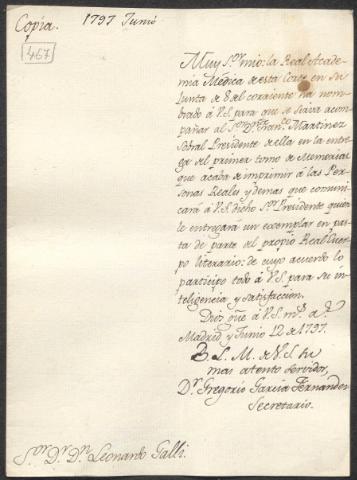 Copia.
1797 Junio
467
Muy S.or mio: la Real Acade-
mia Médica de esta Corte en su
Junta de 8 del corriente ha nom-
brado à V.S. para que se sirva acom-
pañar al S.or D.n Fran.co Martinez
Sobral Presidente de ella en la entre-
ga del primer tomo de Memorias
que acaba de imprimir à las Per-
sonas Reales y demas que comuni-
cará à V.S. dicho S.or Presidente quien
le entregará un exemplar en pas-
ta de parte del propio Real Cuer-
po literario: de cuyo acuerdo lo
participo todo à V.S. para su in-
teligencia y satisfaccion.
Dios gũe à V.S. m.s a.s
Madrid y Junio 12 de 1797.
B. L. M. de V.S. su
mas atento servidor,
D.r Gregorio Garcia Fernandez
Secretario.
S.or D.r D.n Leonardo Galli.